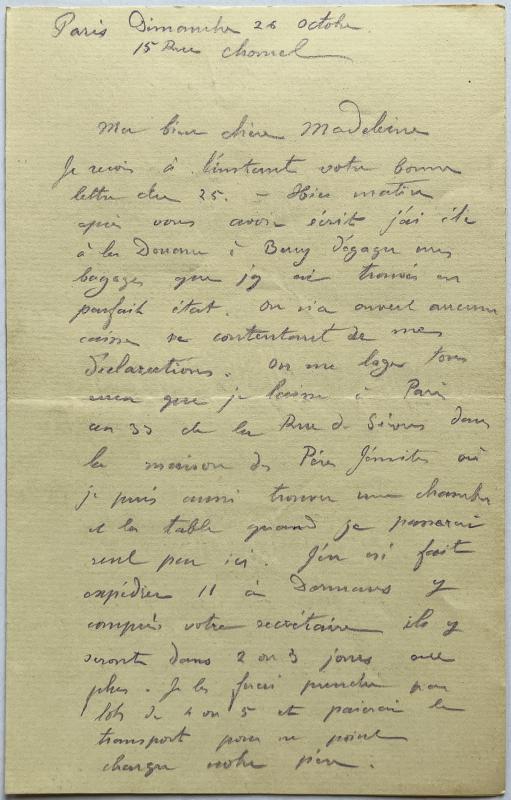 Paris Dimanche 26 Octobre
15 Rue Chomel
Ma bien chère Madeleine
Je reçois à l'instant votre bonne
lettre du 25. - Hier matin
après vous avoir écrit j'ai été
à la Douane à Bercy dégager mes
bagages que j'y ai trouvés en
parfait état. On n'a ouvert aucune
caisse se contentant de mes
déclarations. On me loge tous
ceux que je laisse à Paris
au 33 de la Rue de Sèvres dans
la maison des Pères Jésuites où
je puis aussi trouver une chambre
et la table quand je passerai
seul par ici. J'en ai fait
expédier 11 à Dormans y
compris votre secrétaire ils y
seront dans 2 ou 3 jours au
plus. Je les ferai prendre par
lots de 4 ou 5 et paierai le
transport pour ne point
charger votre père.